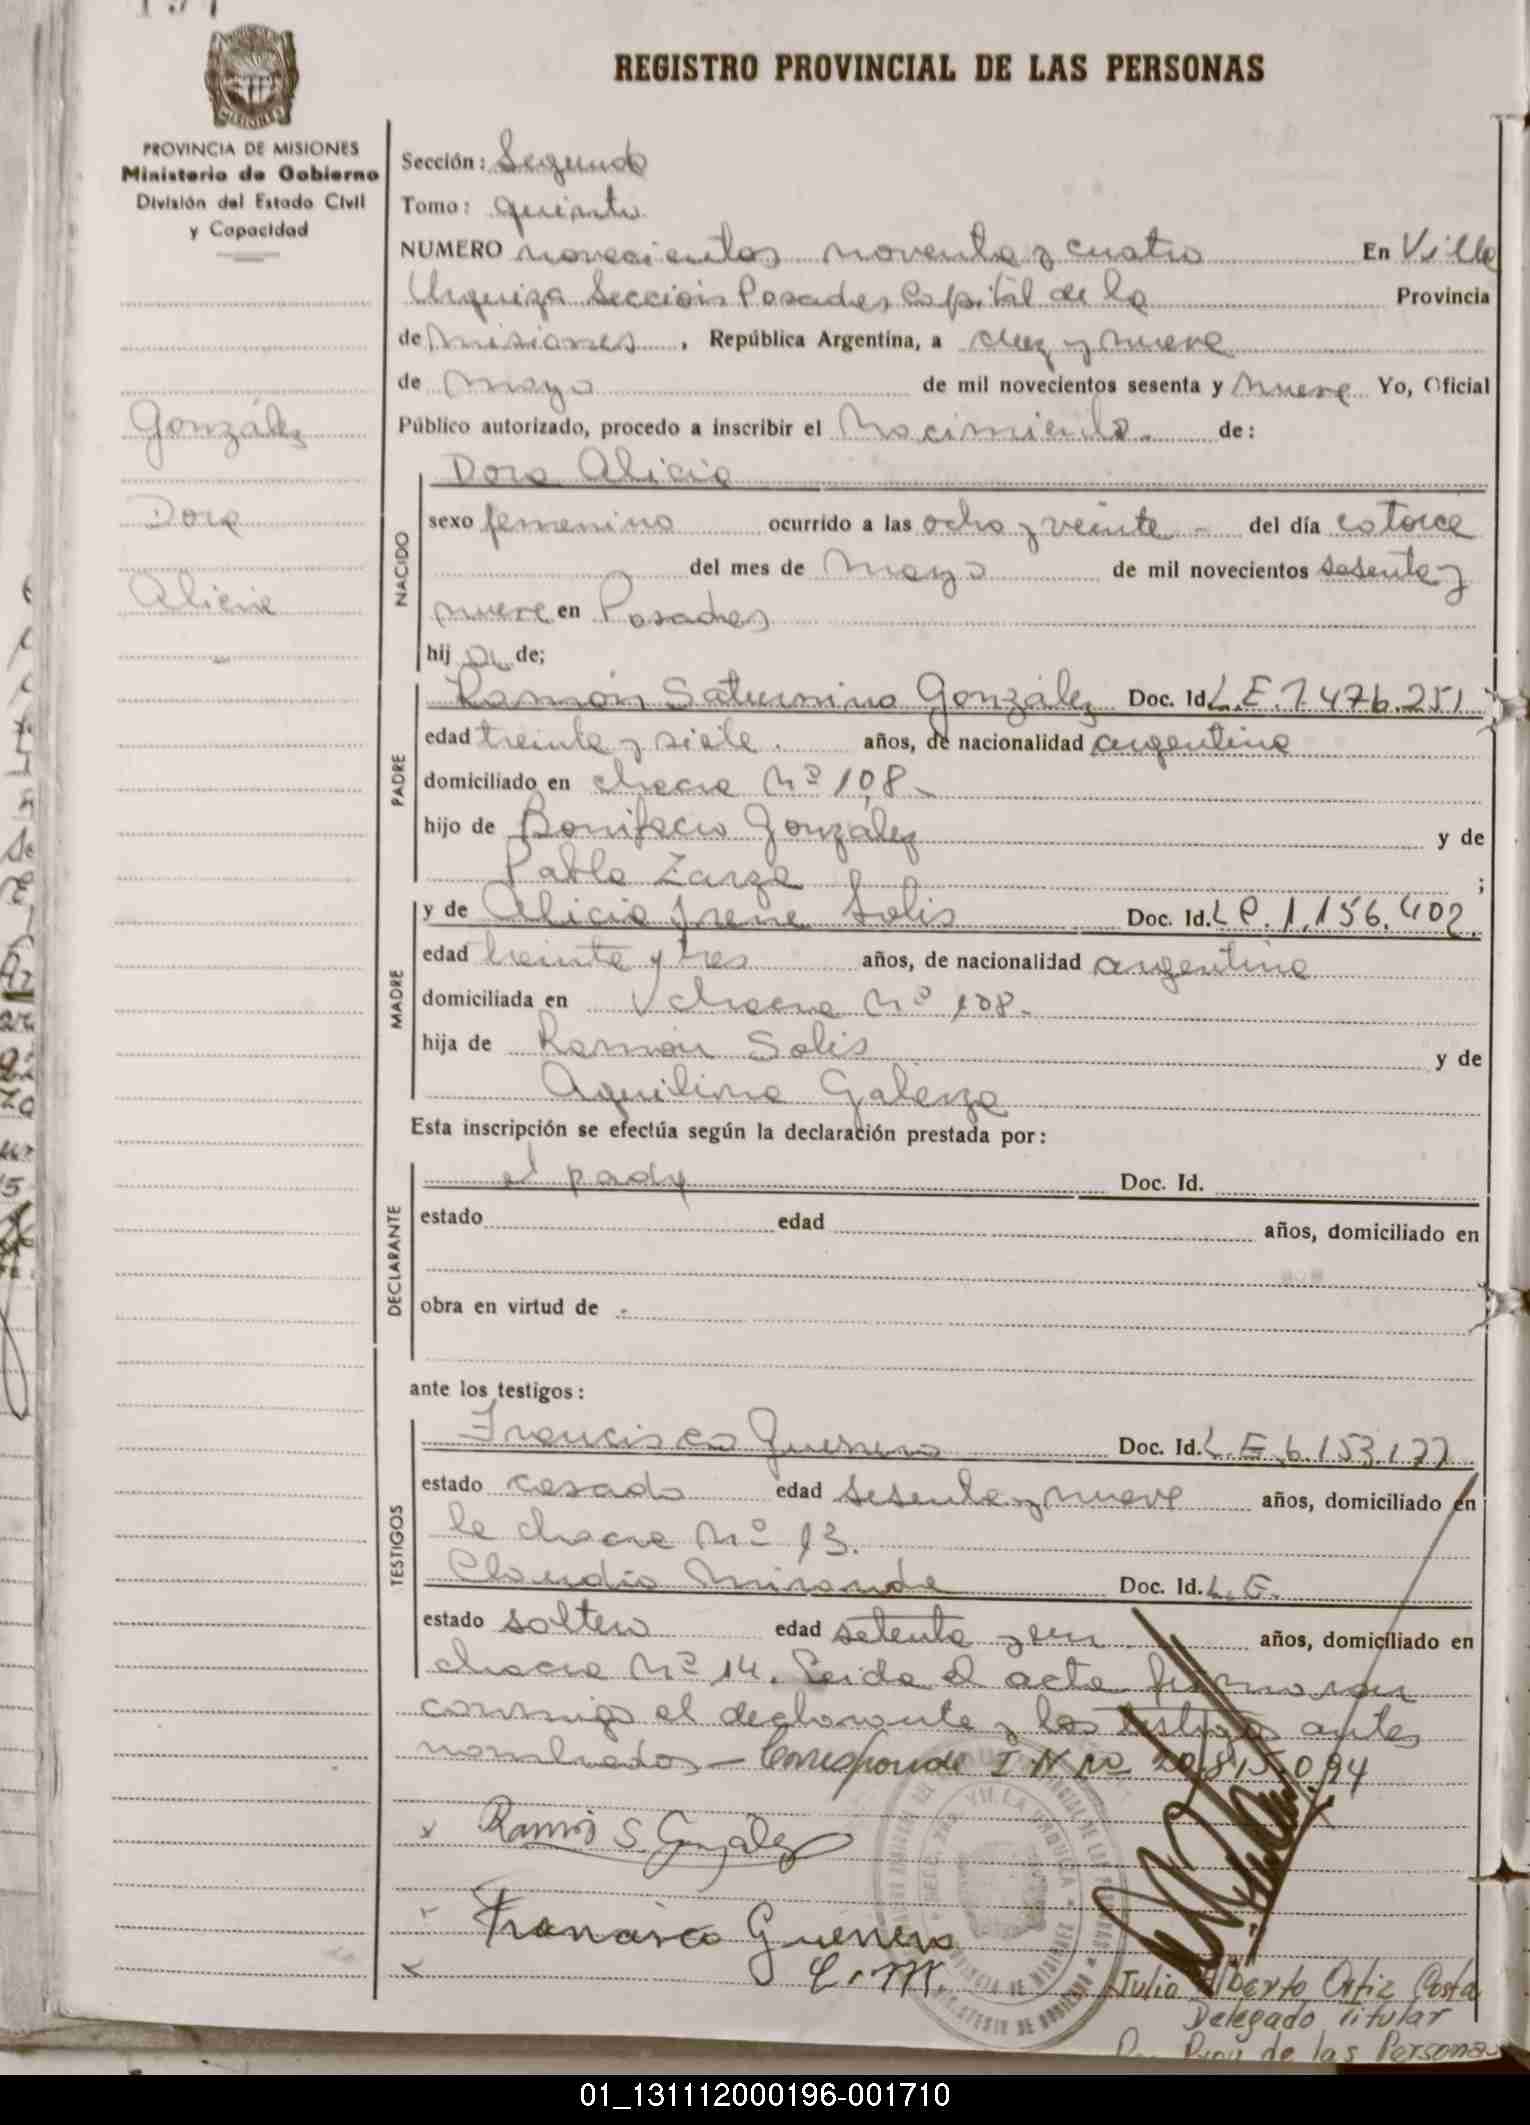 REGISTRO PROVINCIAL DE LAS PERSONAS
MISIONES
PROVINCIA DE MISIONES
Ministerio de Gobierno
División del Estado Civil
y Capacidad
González
Dora
Alicia
Sección: Segundo
Tomo: quinto
NUMERO novecientos noventa y cuatro En Villa
Urquiza Sección Posadas Capital de la Provincia
de Misiones, República Argentina, a diez y nueve
de mayo de mil novecientos sesenta y nueve Yo, Oficial
Público autorizado, procedo a inscribir el Nacimiento. de:
Dora Alicia
NACIDO
sexo femenino ocurrido a las ocho y veinte - del día catorce
del mes de Mayo de mil novecientos sesenta y
nueve en Posadas
hij a de;
PADRE
Ramón Saturnino González Doc. Id. L.E. 7.476.251
edad treinta y siete. años, de nacionalidad argentina
domiciliado en chacra Nº 108.-
hijo de Bonifacio González y de
Pabla Zarza ;
MADRE
y de Alicia Irene Solis Doc. Id. L.C. 1.156.402.
edad treinta y tres años, de nacionalidad argentina
domiciliada en chacra Nº 108.-
hija de Ramón Solis y de
Aquilina Galarza
Esta inscripción se efectúa según la declaración prestada por:
DECLARANTE
el padre Doc. Id.
estado edad años, domiciliado en
obra en virtud de -
ante los testigos:
TESTIGOS
Francisco Guerrero Doc. Id. L.E. 6.153.177
estado casado edad sesenta y nueve años, domiciliado en
la chacra Nº 13.
Claudio Miranda Doc. Id. L.E.
estado soltero edad setenta y un años, domiciliado en
chacra Nº 14. Leida el acta firmaron
conmigo el declarante y los testigos antes
nombrados - Corresponde I N no 20.815.094
Ramón S. González
Francisco Guerrero
C. M.
Julio Alberto Ortiz Costa
Delegado Titular
Prov de las Personas
01_131112000196-001710